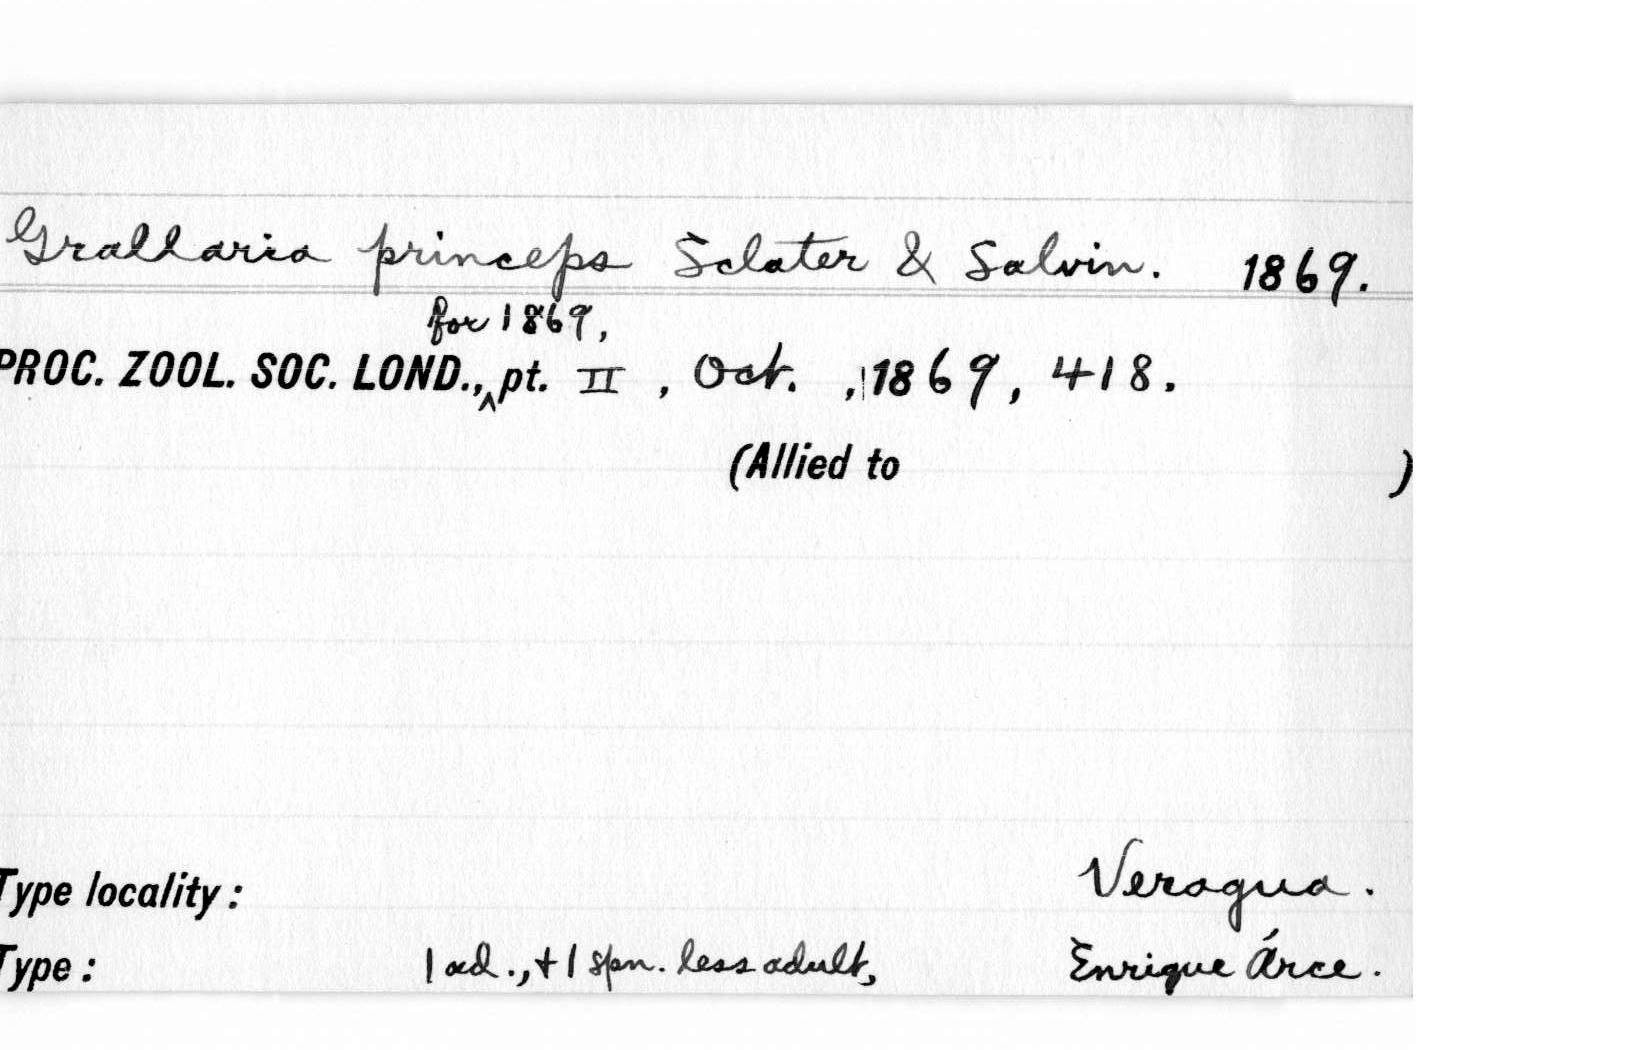 Grallaria princeps Sclater & Salvin. 1869.
for 1869,
PROC. ZOOL. SOC. LOND.,^ pt. II , Oct. , 1869, 418.
(Allied to )
Type locality: Veragua.
Type: 1 ad., + 1 spn. less adult, Enrique Árce.